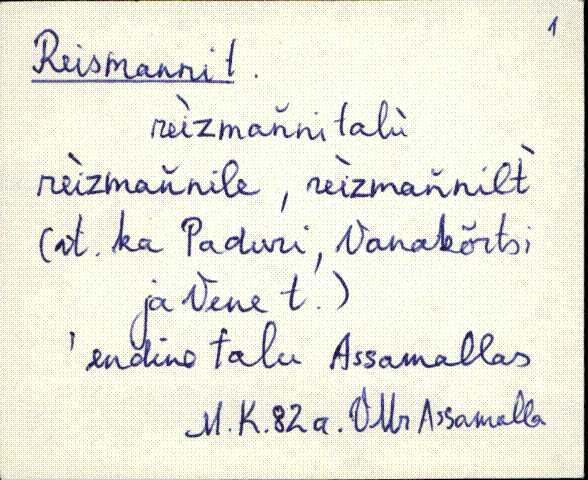 1
Reismanni t.
rèizmaňni talù
rèizmaňnile, rèizmaňnilt̀
(vt. ka Paduri, Vanakõrtsi
ja Vene t.)
'endine talu Assamallas
M.K. 82 a. VMr Assamalla